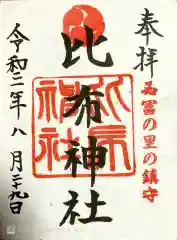 奉拝
名寄の里の鎮守
比布神社
令和二年八月二十九日